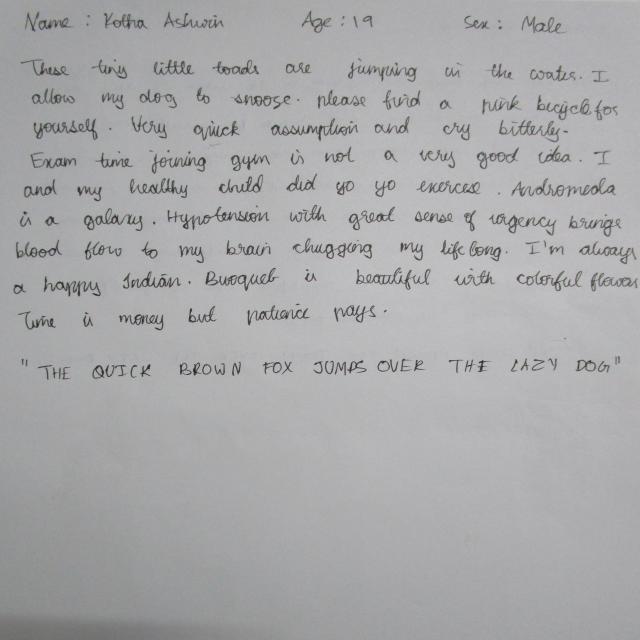 Name : Kotha Ashwin Age : 19 Sex : Male
These tiny little toads are jumping in the water. I
allow my dog to snooze. please find a pink bicycle for
yourself. Very quick assumption and cry bitterly.
Exam time joining gym is not a very good idea. I
and my healthy child did yo yo exercise. Andromeda
is a galaxy. Hypotension with great sense of urgency brings
blood flow to my brain chugging my life long. I'm always
a happy Indian. Buoquet is beautiful with colorful flowers
Time is money but patience pays.
"THE QUICK BROWN FOX JUMPS OVER THE LAZY DOG"